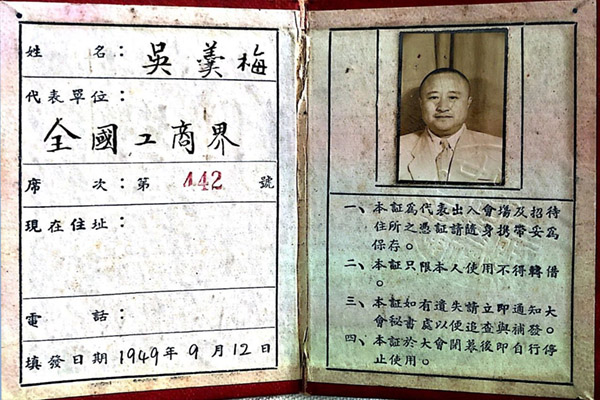 姓名：吳羹梅
代表單位：
全國工商界
席次：第 442 號
現在住址：
電話：
填發日期 1949年9月12日
一、本証為代表出入會場及招待
住所之憑証請隨身携带妥為
保存。
二、本証只限本人使用不得轉借
。
三、本証如有遺失請立即通知大
會秘書處以便追查與補發。
四、本証於大會閉幕後即自行停
止使用。